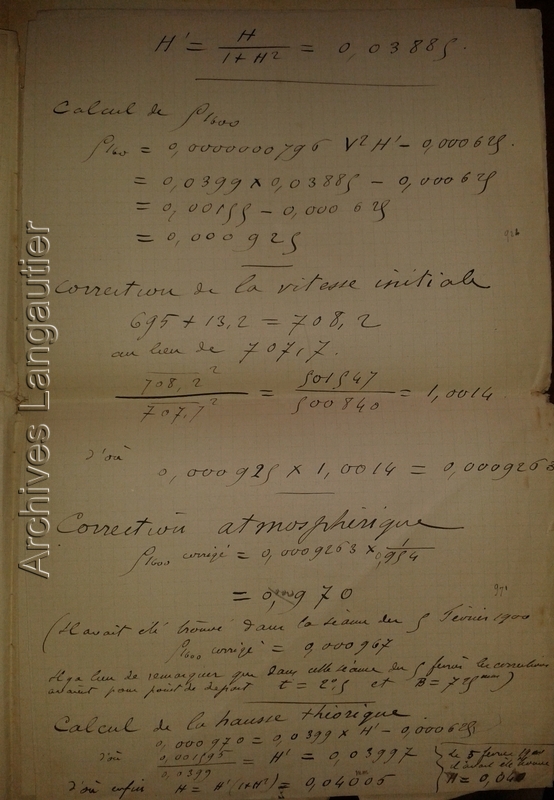 H' = H / 1 + H² = 0,03885.
Calcul de ρ1600
ρ160 = 0,0000000796 V² H' - 0,000625.
= 0,0399 × 0,03885 - 0,000625
= 0,00155 - 0,000625
= 0,000925
Correction de la vitesse initiale
695 + 13,2 = 708,2
au lieu de 707,7.
708,2² / 707,7² = 501547 / 500840 = 1,0014
d'où
0,000925 × 1,0014 = 0,0009263
Correction atmosphérique
ρ1600 corrigé = 0,0009263 × 1 / 0,954
= 0,000970
(Il avait été trouvé dans la séance du 5 Février 1900
ρ1600 corrigé = 0,000967
Il y a lieu de remarquer que dans cette séance du 5 février les corrections
avaient pour point de départ t = 2°,5 et B = 725 mm)
Calcul de la hausse théorique
0,000970 = 0,0399 × H' - 0,000625
d'où 0,001595 / 0,0399 = H' = 0,03997
d'où enfin H = H'(1+H²) = 0,04006
Le 5 février 1900
il avait été trouvé
H = 0,040
Archives Langautier